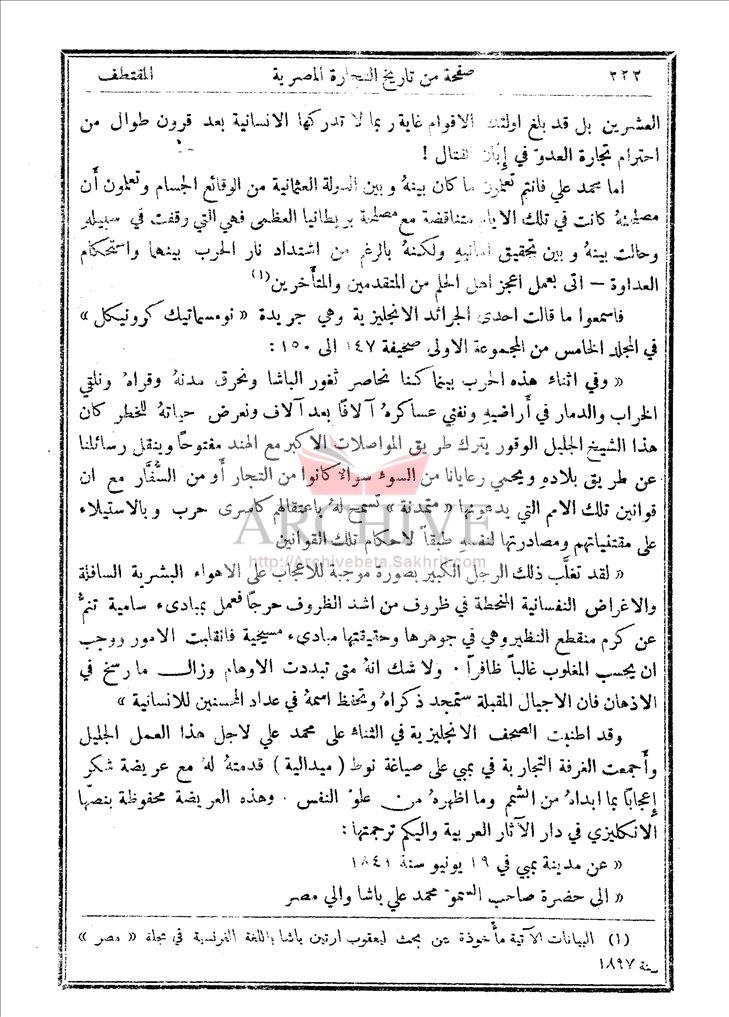 ٣٢٢ صفحة من تاريخ التجارة المصرية المقتطف
العشرين بل قد بلغ اولئك الاقوام غاية ربما لا تدركها الانسانية بعد قرون طوال من
احترام تجارة العدو في إبّان القتال !
اما محمد علي فانتم تعلمون ما كان بينهُ وبين الدولة العثمانية من الوقائع الجسام وتعلمون أن
مصلحتهُ كانت في تلك الايام متناقضة مع مصلحة بريطانيا العظمى فهي التي وقفت في سبيلهِ
وحالت بينهُ وبين تحقيق امانيهِ ولكنهُ بالرغم من اشتداد نار الحرب بينهما واستحكام
العداوة – اتى بعمل اعجز اهل الحلم من المتقدمين والمتأخرين(١)
فاسمعوا ما قالت احدى الجرائد الانجليزية وهي جريدة « نومسماتيك كرونيكل »
في المجلد الخامس من المجموعة الاولى صحيفة ١٤٧ الى ١٥٠ :
« وفي اثناء هذه الحرب بينما كنا نحاصر ثغور الباشا ونحرق مدنهُ وقراهُ ونلقي
الخراب والدمار في أراضيهِ ونفني عساكرهُ آلافًا بعد آلاف ونعرض حياتهُ للخطر كان
هذا الشيخ الجليل الوقور يترك طريق المواصلات الاكبر مع الهند مفتوحًا وينقل رسائلنا
عن طريق بلاده ويحمي رعايانا من السوء سواءٌ كانوا من التجار أو من السُّفَّار مع ان
قوانين تلك الامم التي يدعونها « متمدنة » تسمح لهُ باعتقالهم كاسرى حرب وبالاستيلاء
على مقتنياتهم ومصادرتها لنفسهِ طبقاً لاحكام تلك القوانين
ARCHIVE
http://Archivebeta.Sakhrit.com
« لقد تغلَّب ذلك الرجل الكبير بصورة موجبة للاعجاب على الاهواء البشرية السافلة
والاغراض النفسانية المنحطة في ظروف من اشد الظروف حرجاً فعمل بمبادىء سامية تنمُّ
عن كرم منقطع النظير وهي في جوهرها وحقيقتها مبادىء مسيحية فانقلبت الامور ووجب
ان يحسب المغلوب غالباً ظافراً . ولا شك انهُ متى تبددت الاوهام وزال ما رسخ في
الاذهان فان الاجيال المقبلة ستمجد ذكراهُ وتحفظ اسمهُ في عداد المحسنين للانسانية »
وقد اطنبت الصحف الانجليزية في الثناء على محمد علي لاجل هذا العمل الجليل
وأجمعت الغرفة التجارية في بمبي على صياغة نوط ( ميدالية ) قدمتهُ لهُ مع عريضة شكر
إعجابًا بما ابداهُ من الشمم وما اظهرهُ من علوّ النفس . وهذه العريضة محفوظة بنصها
الانكليزي في دار الآثار العربية واليكم ترجمتها :
« عن مدينة بمبي في ١٩ يونيو سنة ١٨٤١
« الى حضرة صاحب السمو محمد علي باشا والي مصر
(١) البيانات الآتية مأخوذة عن بحث ليعقوب ارتين باشا باللغة الفرنسية في مجلة « مصر »
سنة ١٨٩٧